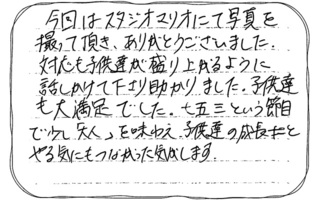 今回はスタジオマリオにて写真を
撮って頂き、ありがとうございました。
対応も子供達が盛り上がるように
話しかけて下さり助かりました。子供達
も大満足でした。七五三という節目
で少し大人、を味わえ、子供達の成長と
やる気にもつながった気がします。